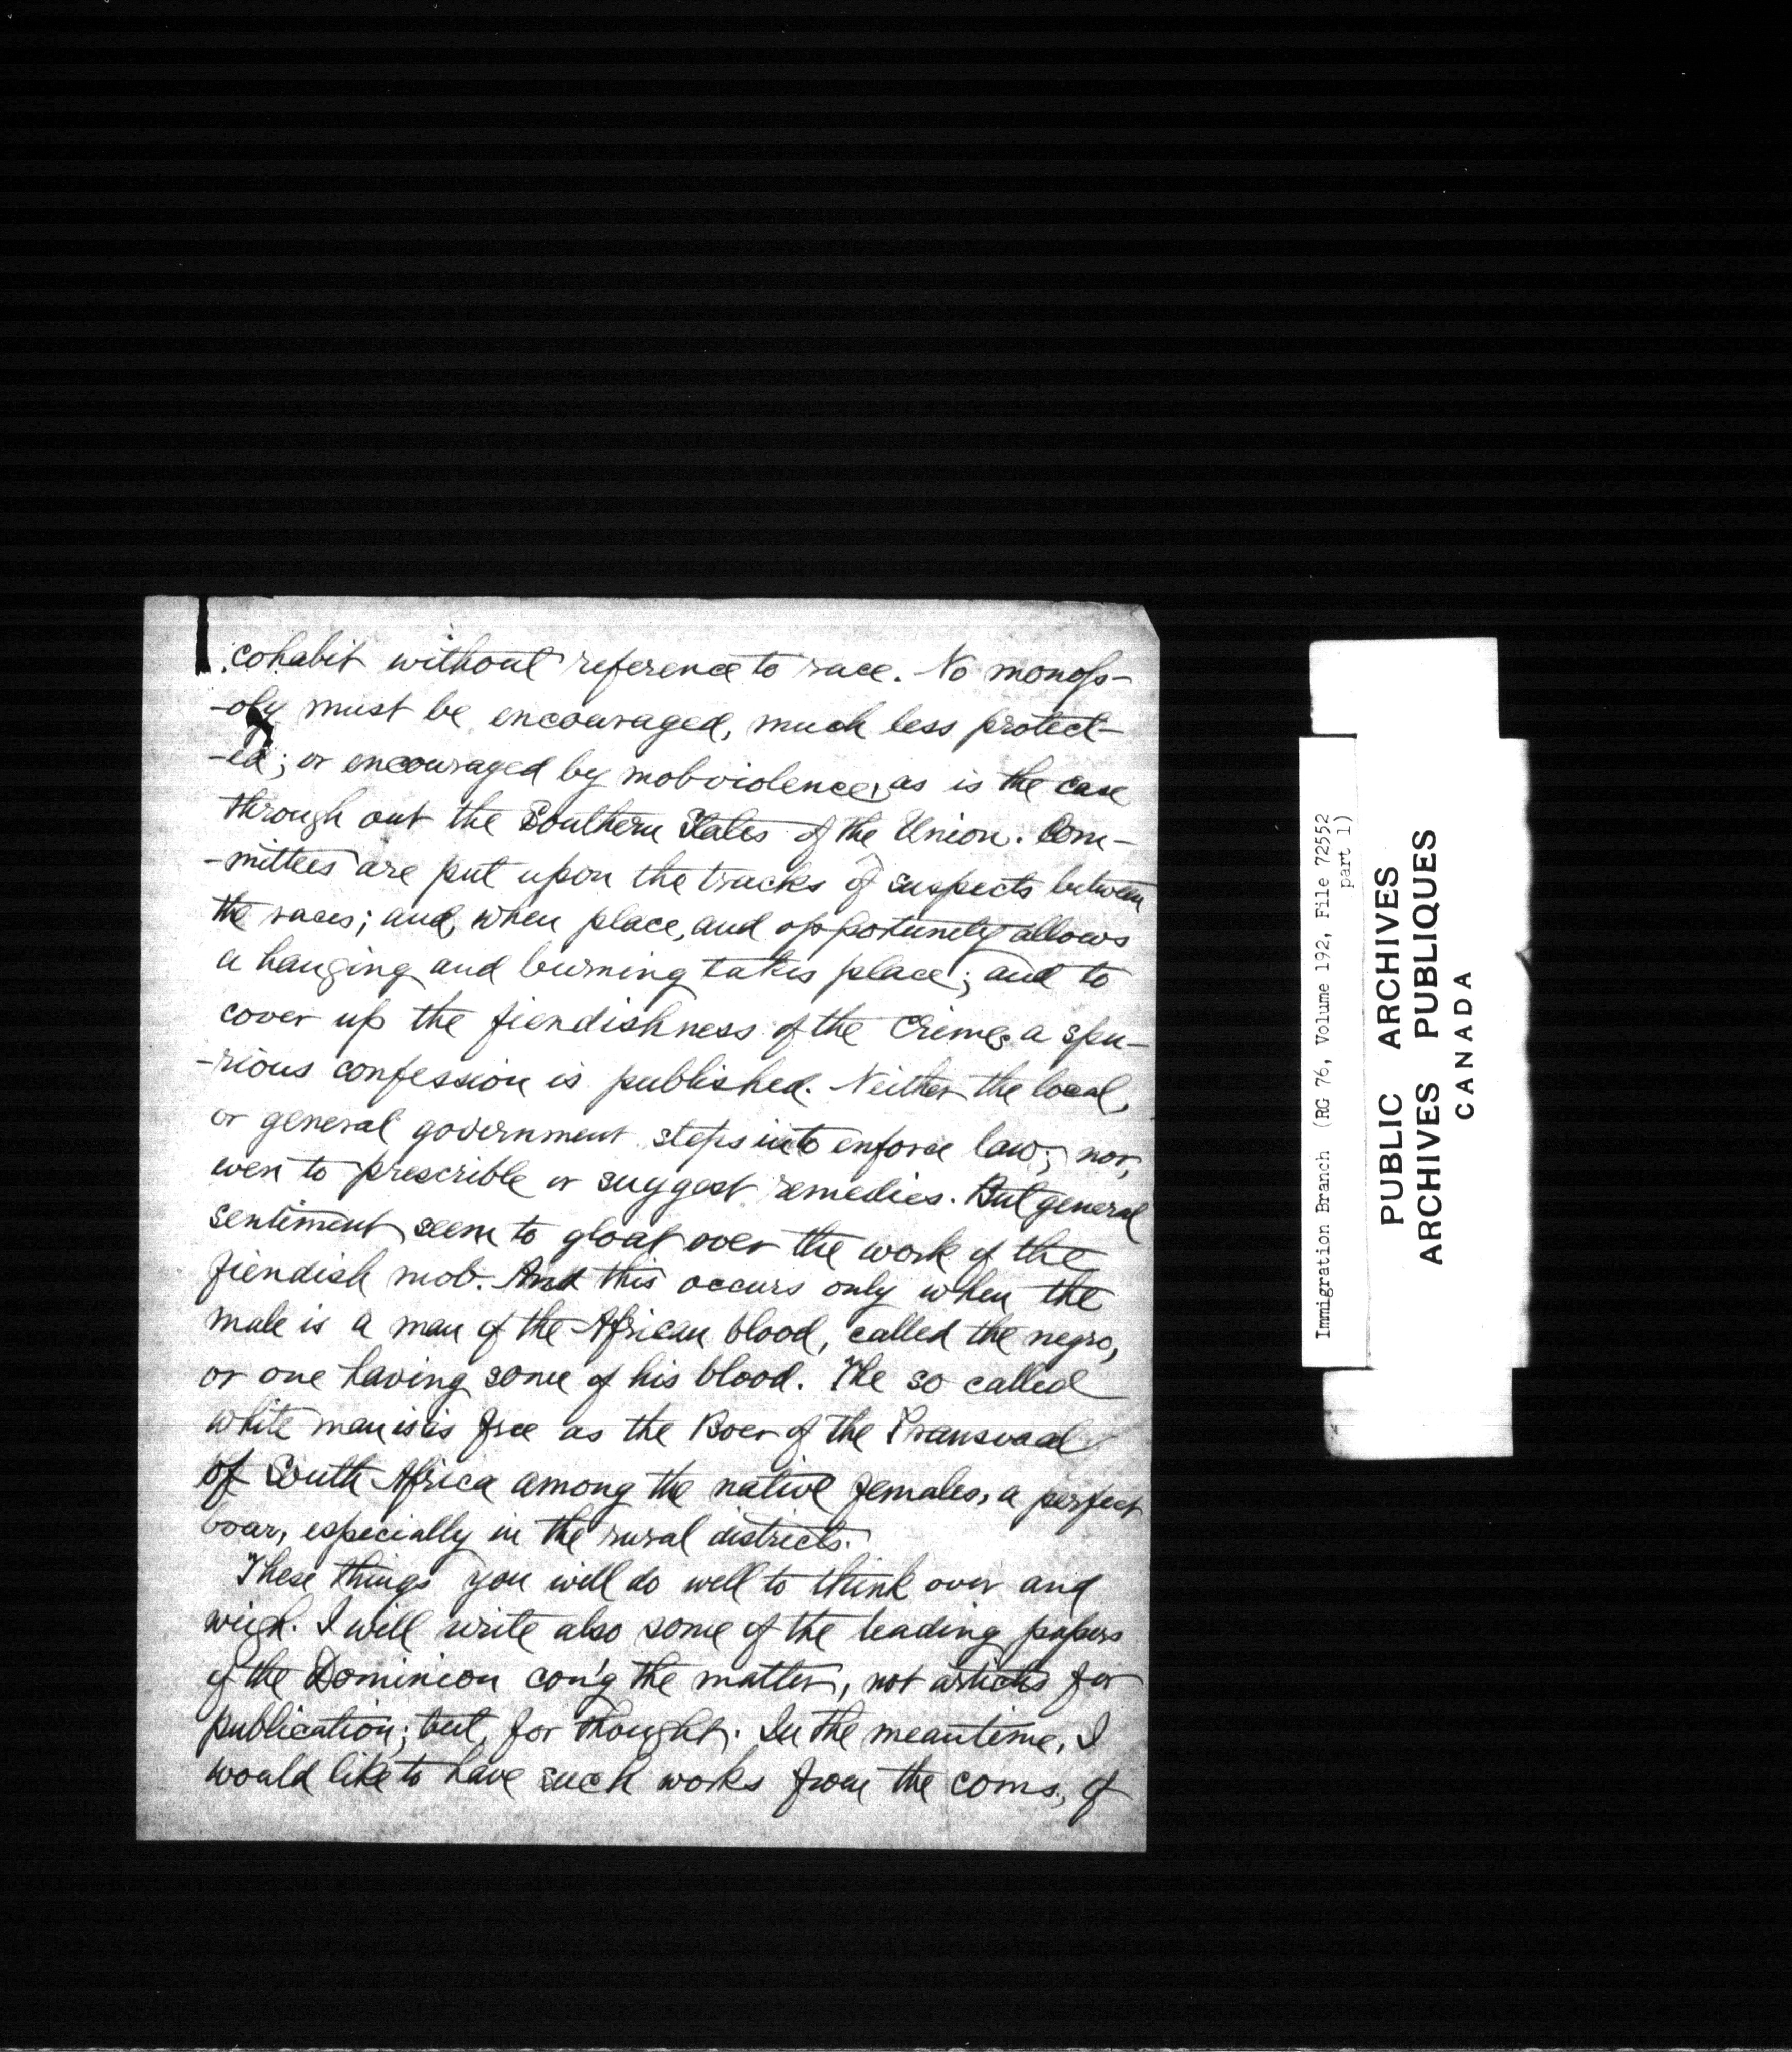 cohabit without reference to race. No monop-
-oly must be encouraged, much less protect-
-ed; or encouraged by mob violence, as is the case
through out the Southern States of the Union. Com-
-mittees are put upon the tracks of suspects between
the races; and, when place, and opportunity allows
a hanging and burning takes place; and to
cover up the fiendishness of the crime, a spu-
-rious confession is published. Neither the local,
or general government steps in to enforce law; nor,
even to prescrible or suggest remedies. But general
sentiment seem to gloat over the work of the
fiendish mob. And this occurs only when the
male is a man of the African blood, called the negro,
or one having some of his blood. The so called
white man is as free as the Boer of the Transvaal
of South Africa among the native females, a perfect
boar, especially in the rural districts.
These things you will do well to think over and
weigh. I will write also some of the leading papers
of the Dominion con'g the matter, not articles for
publication; but, for thought. In the meantime, I
would like to have such works from the coms., of
Immigration Branch (RG 76, Volume 192, File 72552
part 1)
PUBLIC ARCHIVES
ARCHIVES PUBLIQUES
CANADA